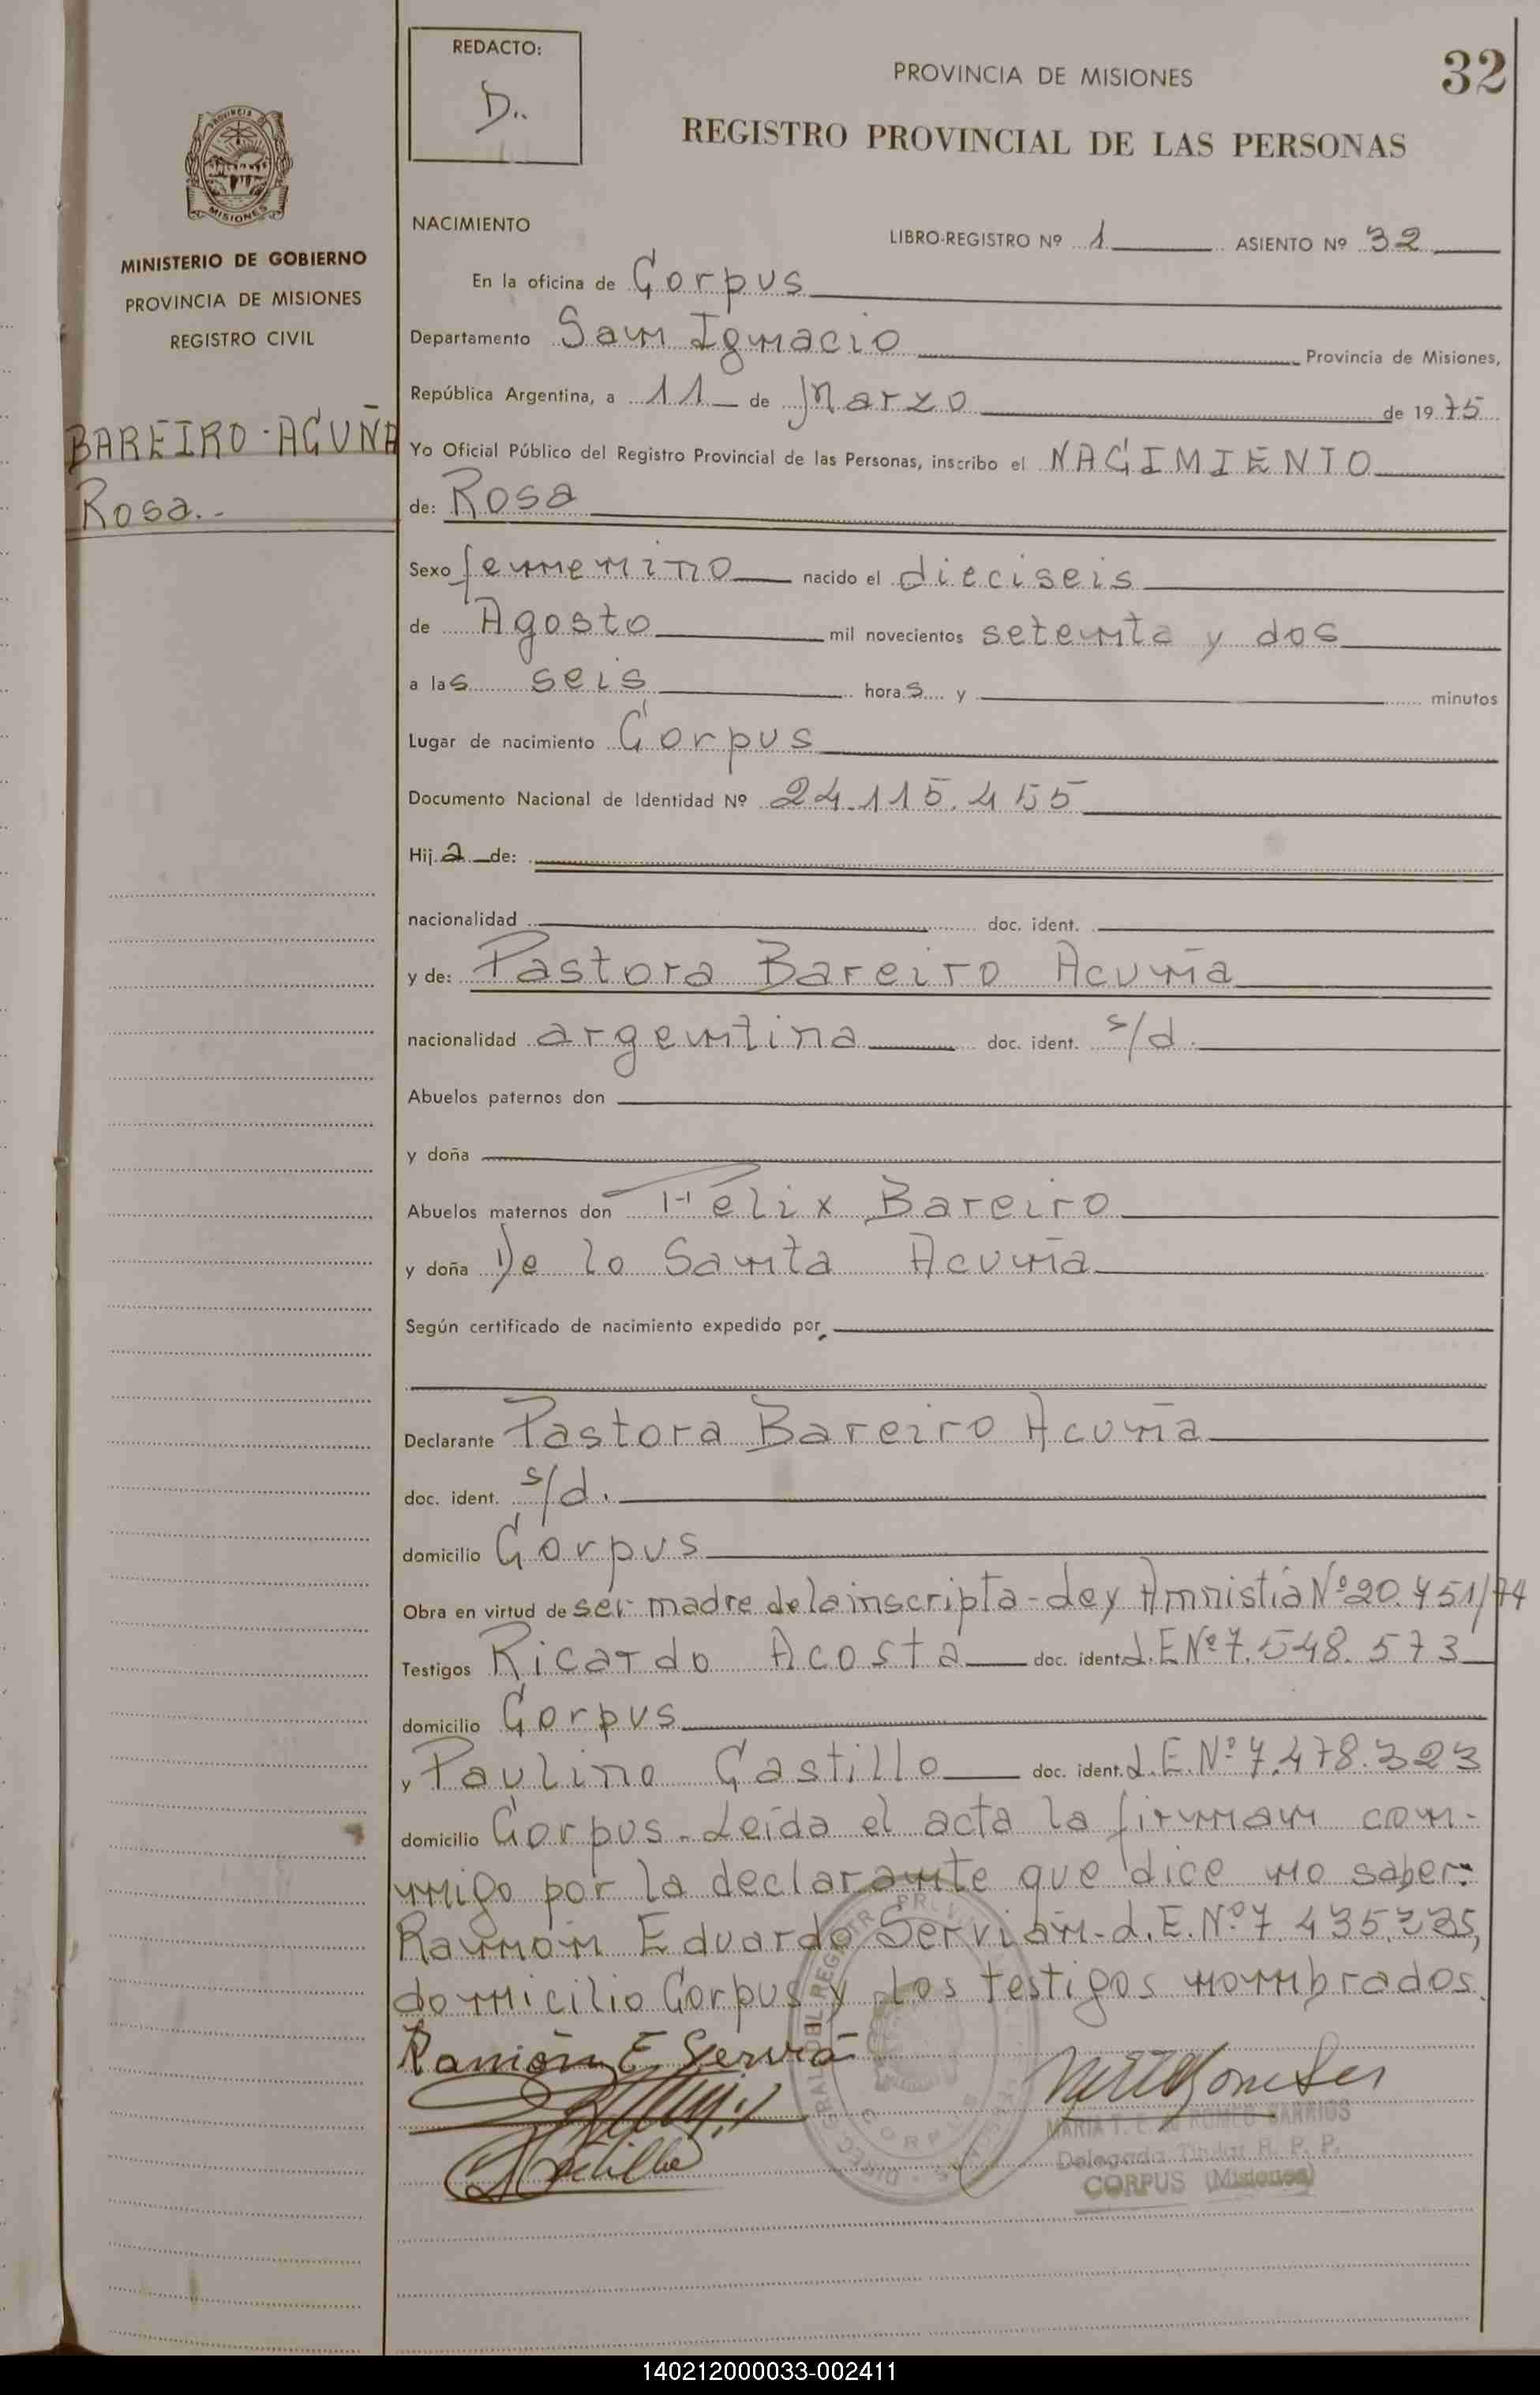 REDACTO:
D..
PROVINCIA DE MISIONES
32
REGISTRO PROVINCIAL DE LAS PERSONAS
PROVINCIA DE
MISIONES
MINISTERIO DE GOBIERNO
PROVINCIA DE MISIONES
REGISTRO CIVIL
BAREIRO-ACUÑA
Rosa.-
NACIMIENTO
LIBRO-REGISTRO Nº 1 ASIENTO Nº 32
En la oficina de Corpus
Departamento San Ignacio Provincia de Misiones,
República Argentina, a 11 de Marzo de 1975
Yo Oficial Público del Registro Provincial de las Personas, inscribo el NACIMIENTO
de: Rosa
Sexo femenino nacido el dieciseis
de Agosto mil novecientos setenta y dos
a las seis horas y minutos
Lugar de nacimiento Corpus
Documento Nacional de Identidad Nº 24.115.455
Hija de:
nacionalidad doc. ident.
y de: Pastora Bareiro Acuña
nacionalidad argentina doc. ident. s/d.
Abuelos paternos don
y doña
Abuelos maternos don Felix Bareiro
y doña De lo Santa Acuña
Según certificado de nacimiento expedido por
Declarante Pastora Bareiro Acuña
doc. ident. s/d.
domicilio Corpus
Obra en virtud de ser madre de la inscripta-Ley Amnistia Nº 20.751/74
Testigos Ricardo Acosta doc. ident. L.E Nº 7.548.573
domicilio Corpus
y Paulino Castillo doc. ident. L.E. Nº 7.478.323
domicilio Corpus-Leída el acta la firman con-
migo por la declarante que dice no saber:
Ramón Eduardo Servián-L.E. Nº 7.435.335,
domicilio Corpus y los testigos nombrados.
Ramón E. Servia
Castillo
MARIA T. E. de ROMEO BARRIOS
Delegada Titular R. P. P.
CORPUS (Misiones)
140212000033-002411